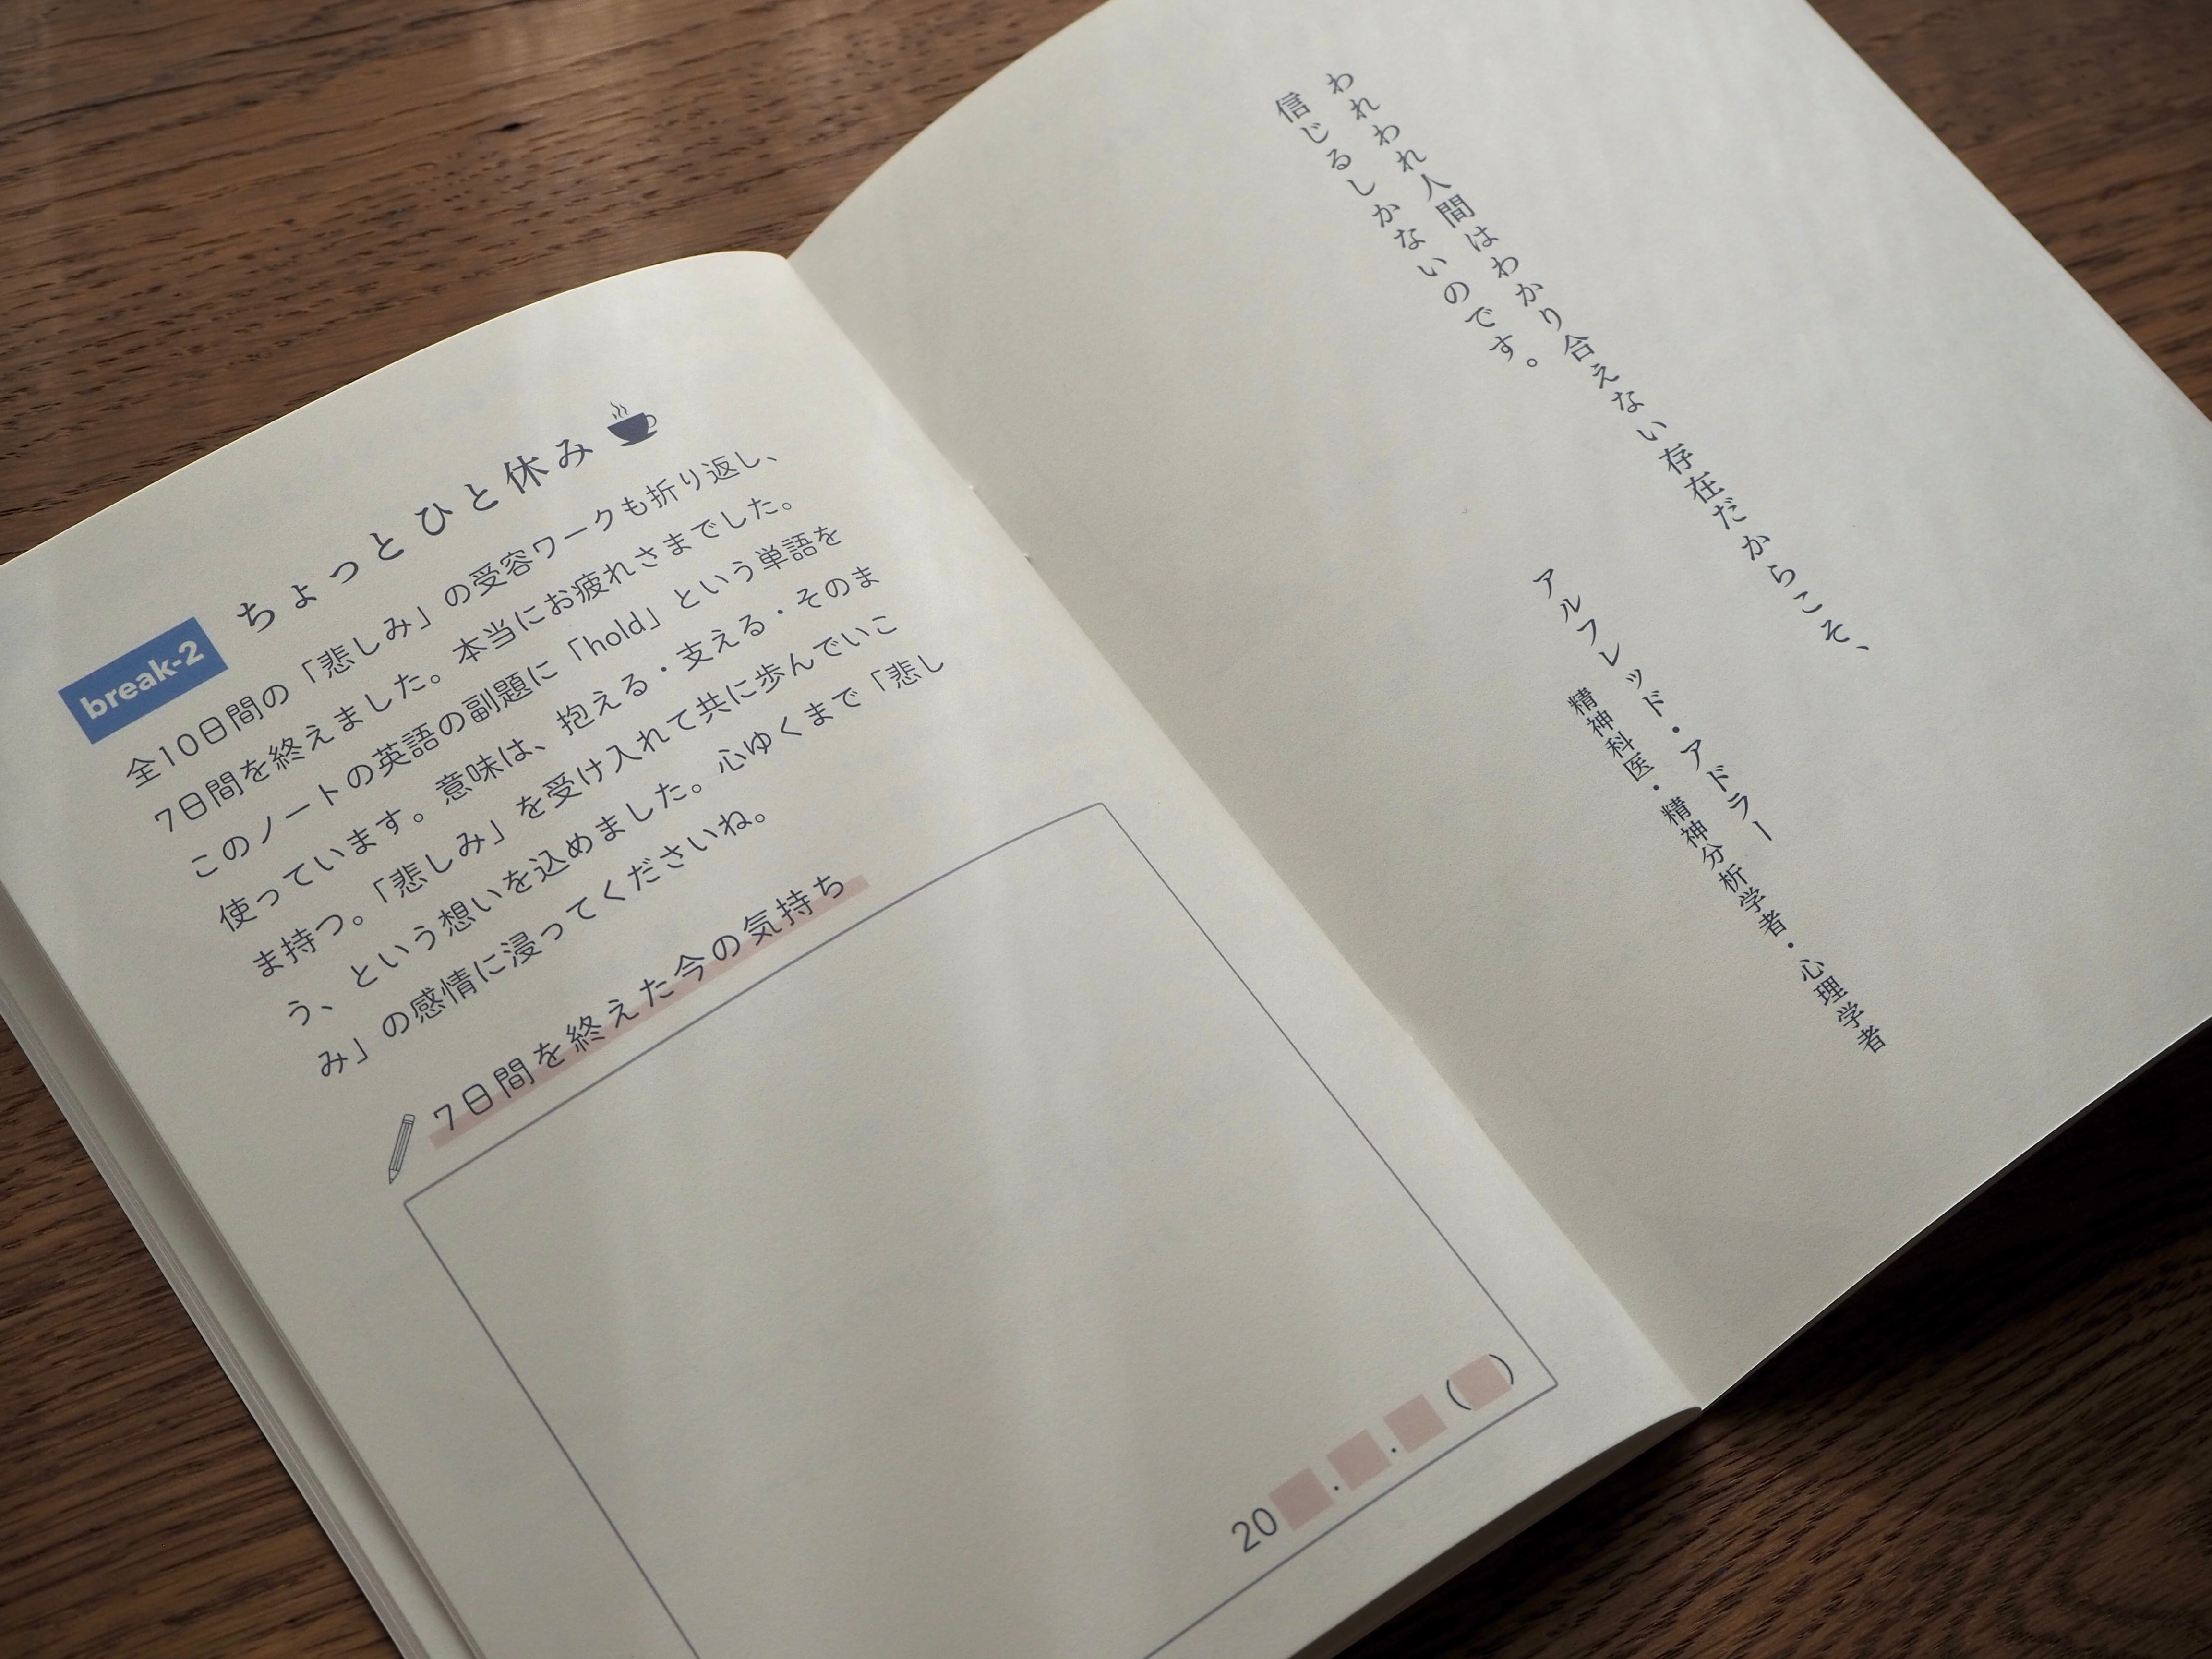 break-2 ちょっとひと休み
全10日間の「悲しみ」の受容ワークも折り返し、
7日間を終えました。本当にお疲れさまでした。
このノートの英語の副題に「hold」という単語を
使っています。意味は、抱える・支える・そのま
ま持つ。「悲しみ」を受け入れて共に歩んでいこ
う、という想いを込めました。心ゆくまで「悲し
み」の感情に浸ってくださいね。
7日間を終えた今の気持ち
20 . . ( )
われわれ人間はわかり合えない存在だからこそ、
信じるしかないのです。
アルフレッド・アドラー
精神科医・精神分析学者・心理学者